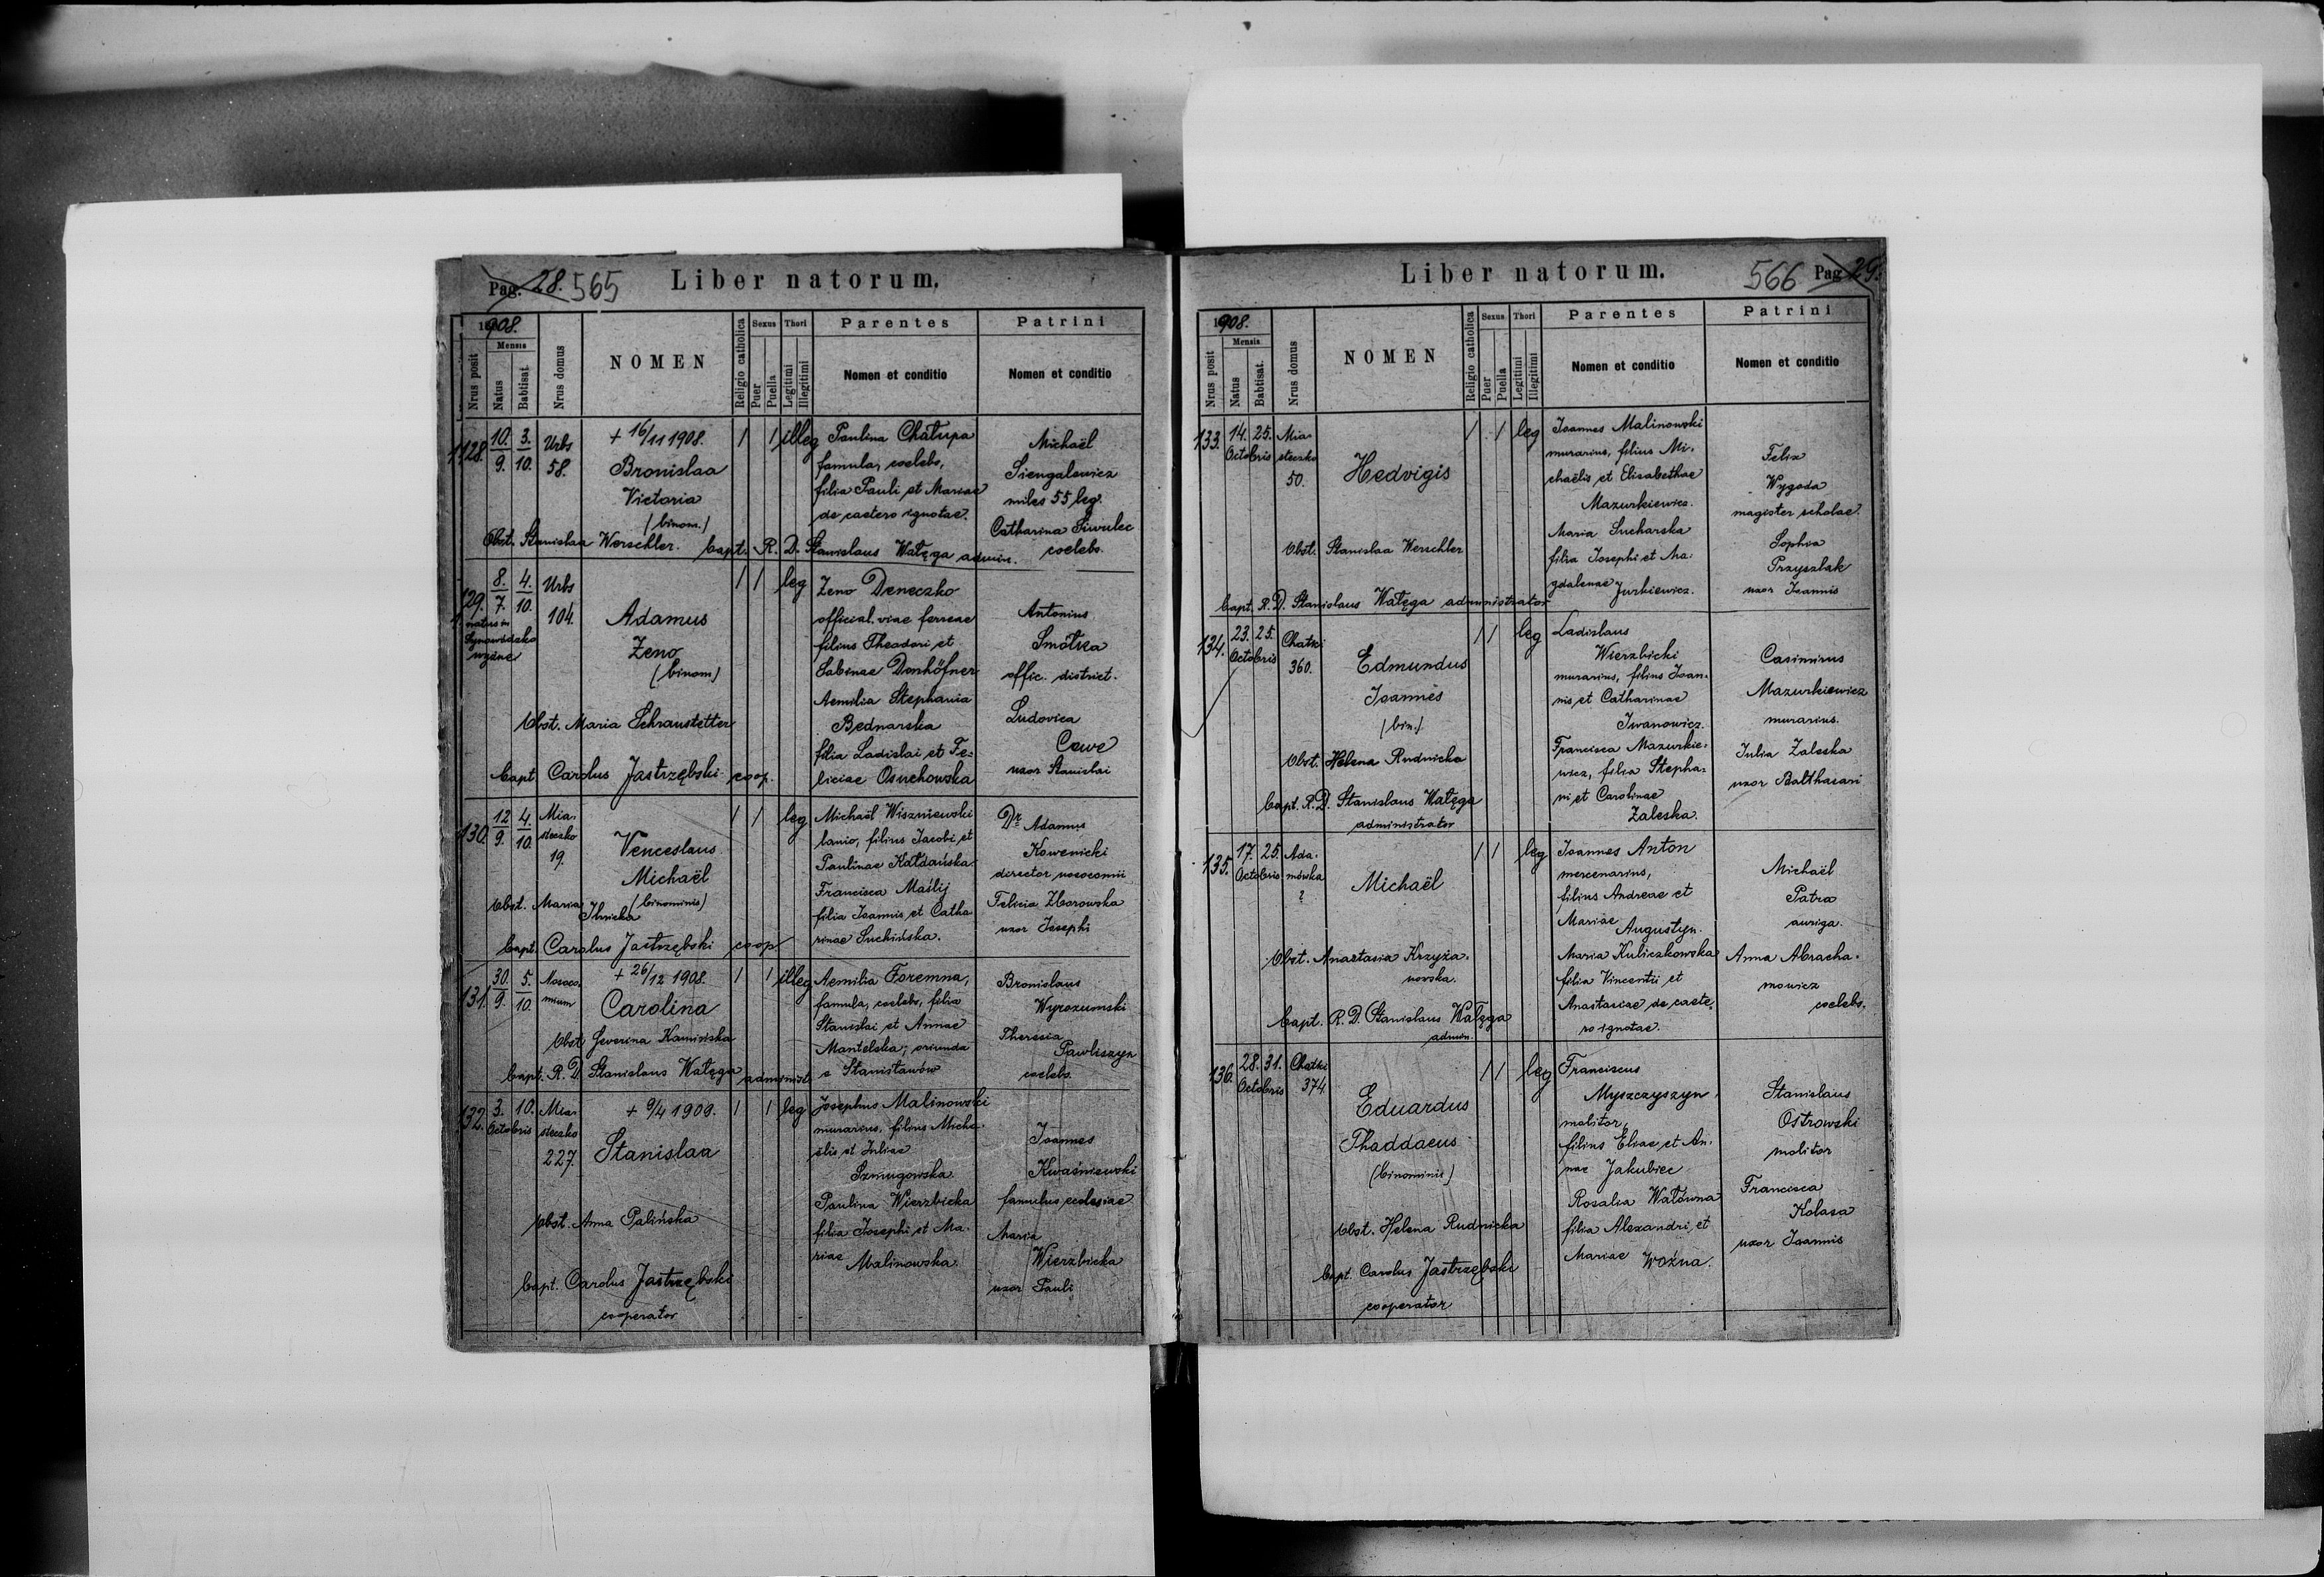 Pag. 28. 565
Liber natorum.
1908.
Nrus posit
Mensis
Natus
Babtisat.
Nrus domus
NOMEN
Religio catholica
Sexus
Puer
Puella
Thori
Legitimi
Illegitimi
Parentes
Nomen et conditio
Patrini
Nomen et conditio
128.
10. 3.
9. 10.
Urbs
58.
+ 16/11 1908.
Bronislaa
Victoria
(binom.)
1 1 illeg
Paulina Chałupa
famula, coelebs,
filia Pauli et Mariae
de caetero ignotae.
Michaël
Siengalewicz
miles 55 leg.
Catharina Siwulec
coelebs.
Obst. Stanislaa Werschler. bapt. R. D. Stanislaus Watęga admin.
129.
8. 4.
7. 10.
natus in
Synowódzko
wyżne
Urbs
104.
Adamus
Zeno
(binom)
1 1 leg
Zeno Deneczko
official. viae ferreae
filius Theodori et
Sabinae Donhöfner
Aemilia Stephania
Bednarska
filia Ladislai et Fe-
liciae Osuchowska
Antonius
Smółka
offic. district.
Ludovica
Cewe
uxor Stanislai
Obst. Maria Schraustetter
bapt Carolus Jastrzębski coop.
130.
12 4.
9. 10.
Mia-
steczko
19.
Venceslaus
Michaël
(binominis)
1 1 leg
Michaël Wiszniewski
lanio, filius Jacobi et
Paulinae Kałdańska
Francisca Maślij
filia Joannis et Catha
rinae Suchińska.
Dr Adamus
Kowenicki
director nosocomii
Felicia Zborowska
uxor Josephi
Obst. Maria
Ilnicka
bapt. Carolus Jastrzębski coop
131.
30. 5.
9. 10.
Nosoco-
mium
+ 26/12 1908.
Carolina
1 1 illeg
Aemilia Foremna,
famula, coelebs, filia
Stanislai et Annae
Mantelska; oriunda
e Stanisławów
Bronislaus
Wyrozumski
Theresia
Pawliszyn
coelebs.
Obst Severina Kamińska
bapt. R. D. Stanislaus Watęga administ.
132.
3. 10.
Octobris
Mia-
steczko
227.
+ 9/4 1909.
Stanislaa
1 1 leg
Josephus Malinowski
murarius, filius Micha-
ëlis et Juliae
Szmugowska
Paulina Wierzbicka
filia Josephi et Ma-
riae Malinowska.
Joannes
Kwaśniewski
famulus ecclesiae
Maria
Wierzbicka
uxor Pauli
Obst. Anna Palińska
bapt. Carolus Jastrzębski
cooperator
Liber natorum.
566 Pag 29.
1908.
Nrus posit
Mensis
Natus
Babtisat.
Nrus domus
NOMEN
Religio catholica
Sexus
Puer
Puella
Thori
Legitimi
Illegitimi
Parentes
Nomen et conditio
Patrini
Nomen et conditio
133.
14. 25.
Octobris
Mia-
steczko
50.
Hedvigis
1 1 leg
Joannes Malinowski
murarius, filius Mi-
chaëlis et Elisabethae
Mazurkiewicz.
Maria Sucharska
filia Josephi et Ma-
gdalenae Jurkiewicz.
Felix
Wygoda
magister scholae.
Sophia
Przyszlak
uxor Joannis
Obst. Stanislaa Werschler
bapt. R. D. Stanislaus Watęga administrator
134.
23. 25.
Octobris
Chatki
360.
Edmundus
Joannes
(bin.)
1 1 leg
Ladislaus
Wierzbicki
murarius, filius Joan-
nis et Catharinae
Iwanowicz.
Francisca Mazurkie-
wicz, filia Stepha-
ni et Carolinae
Zaleska.
Casimirus
Mazurkiewicz
murarius.
Julia Zaleska
uxor Balthasari
Obst. Helena Rudnicka
bapt. R. D. Stanislaus Watęga
administrator
135.
17. 25.
Octobris
Ada-
mówka
?
Michaël
1 1 leg
Joannes Anton
mercenarius,
filius Andreae et
Mariae Augustyn.
Maria Kuliczkowska
filia Vincentii et
Anastasiae de caete-
ro ignotae.
Michaël
Patra
auriga.
Anna Abracha-
mowicz
coelebs.
Obst. Anastasia Krzyża-
nowska.
bapt. R. D. Stanislaus Watęga
admin.
136.
28. 31.
Octobris
Chatki
374
Eduardus
Thaddaeus
(binominis)
1 1 leg
Franciscus
Myszczyszyn,
molitor,
filius Eliae et An-
nae Jakubiec
Rosalia Watówna
filia Alexandri, et
Mariae Woźna.
Stanislaus
Ostrowski
molitor
Francisca
Kolasa
uxor Joannis
Obst. Helena Rudnicka
bapt. Carolus Jastrzębski
cooperator